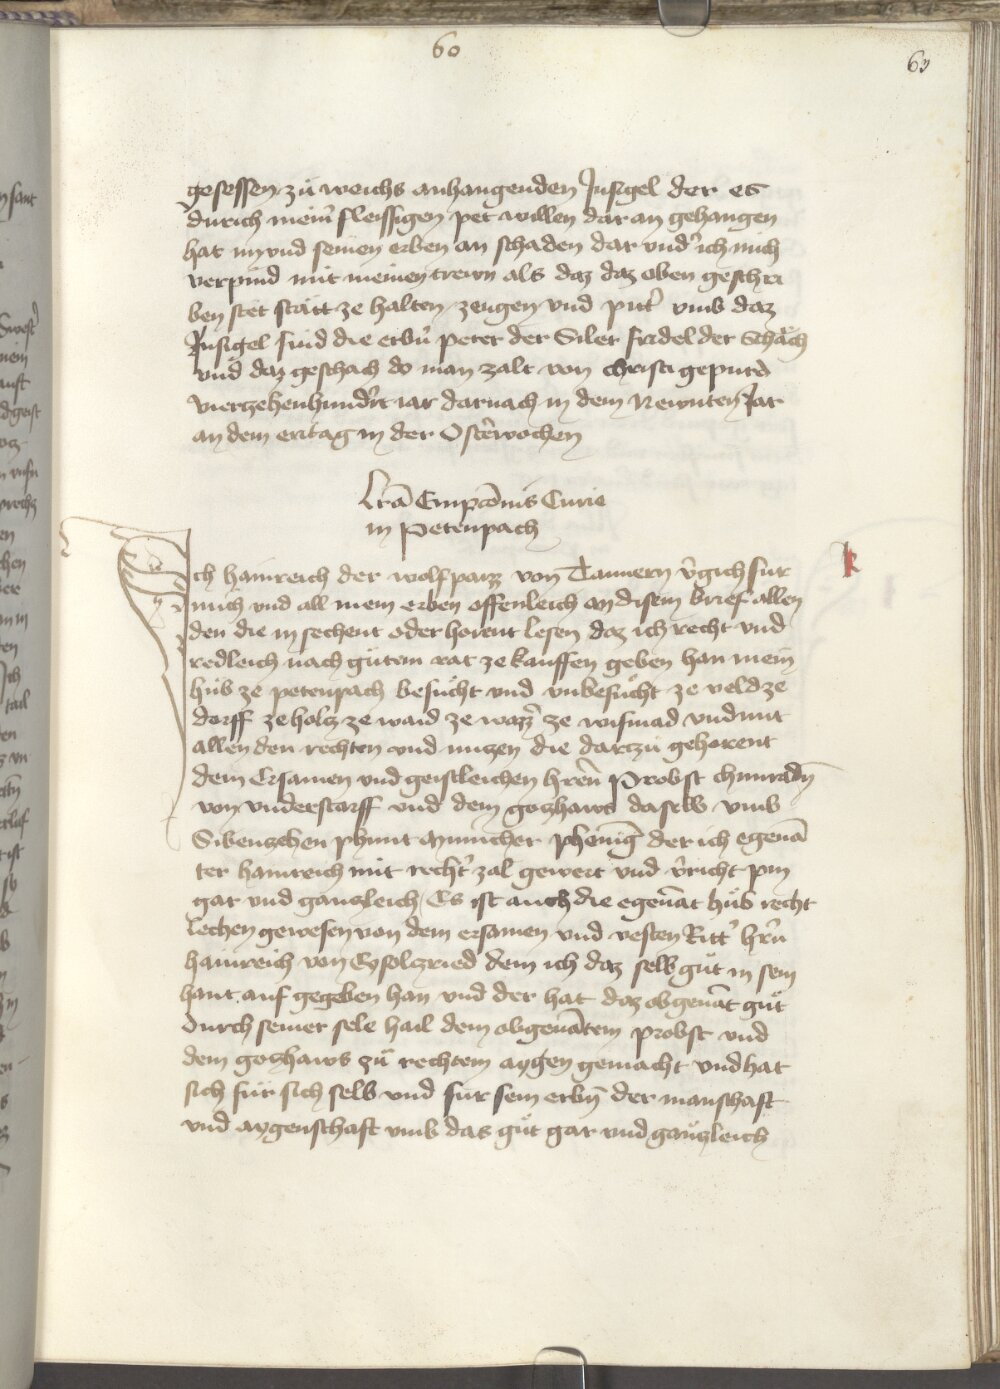 60
63
gesessen zů weichs anhangenden Jnsigel der es
durich meinˀ fleissigen pet willen dar an gehangen
hat im vnd seinen erben an schaden dar vndˀ ich mich
verpind mit meinen trewn als daz daz oben geschri
ben stet stätt ze halten zeugen vnd pitˀ vmb daz
Jnsigel sind die erbˀn peter der Siler fridel der Schäch
vnd daz geschach do man zalt von christi gepurd
vierzehenhundˀrt iar darnach in dem Newnten Jar
an dem eritag in der Ostˀwochen
Lrā Empcōnis Curie
in Petenpach
Ich hainreich der wolfparz von Tannern vˀgich fur
mich vnd all mein erben offenleich an disem brief allen
den die in sechent oder horent lesen daz ich recht vnd
redleich nach gůtem rat ze kauffen geben han mein
hůb ze petenpach besůcht vnd vnbesůcht ze veld ze
dorff ze holz ze waid ze wazzˀ ze wismad vnd mit
allen den rechten vnd nuzen die darzů gehorent
dem Ersamen vnd geistleichen hˀren Probst chunradn̄
von vnderstorff vnd dem gozhaws daselb vmb
Sibenzehen phunt Municher phēnig der ich egenā
ter hainreich mit rechtˀ zal gewert vnd vˀricht pin
gar vnd ganzleich Es ist auch die egenāt hůb recht
lechen gewesen von dem ersamen vnd vesten Rittˀ hˀrn
hainreich von Eysolzried dem ich daz selb gůt in sein
hant auf gegeben han vnd der hat daz obgenāt gůt
durch seiner sele hail dem obgenātem probst vnd
dem gozhaws zů rechtem aygen gemacht vnd hat
sich für sich selb vnd für sein erbn̄ der manschaft
vnd aygenschaft vmb das gůt gar vnd gänzleich